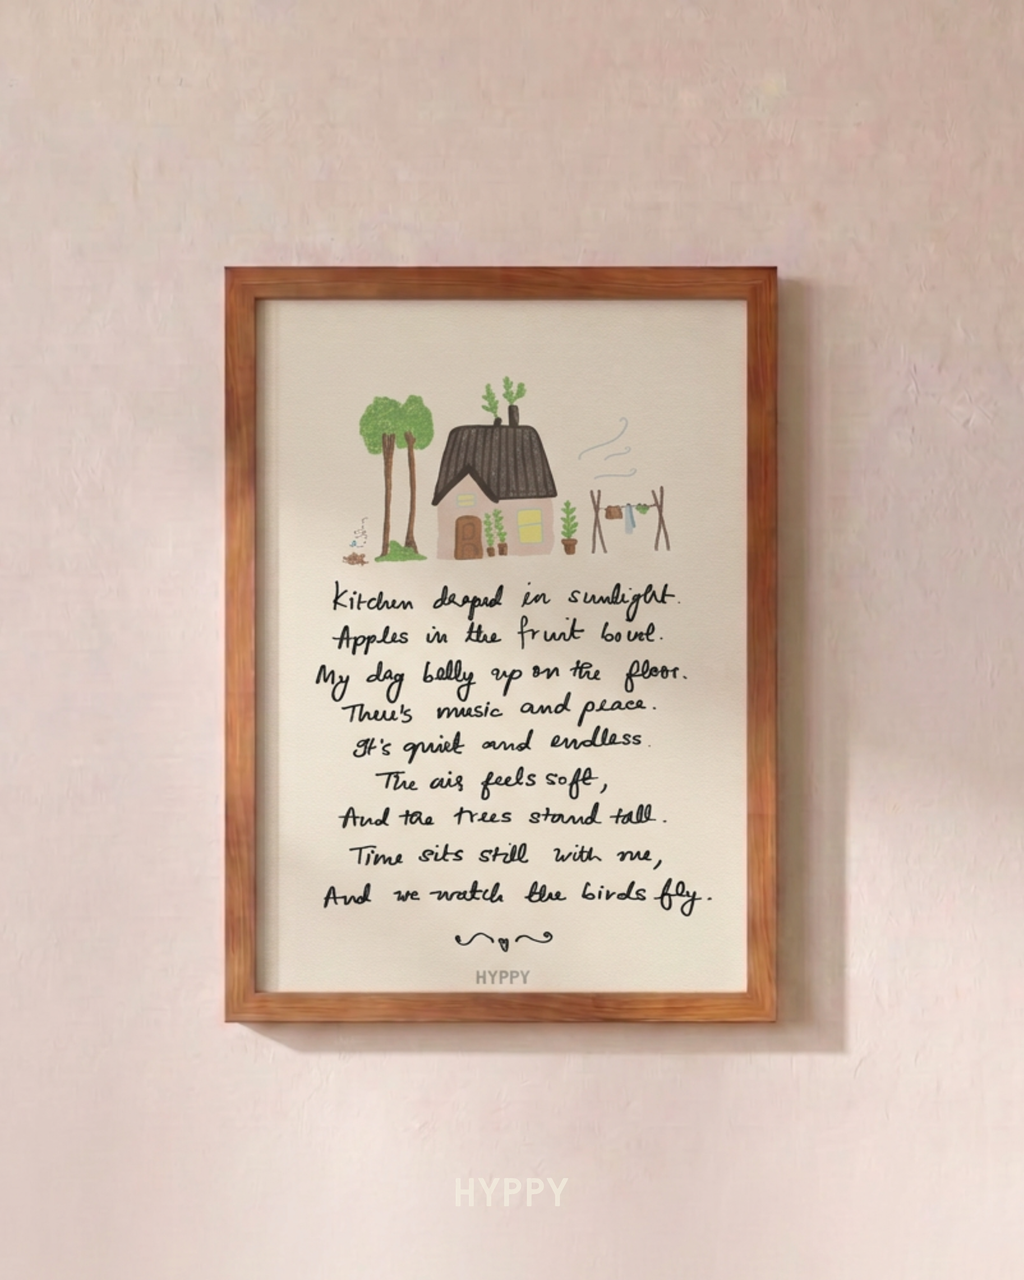 Kitchen draped in sunlight.
Apples in the fruit bowl.
My dog belly up on the floor.
There's music and peace.
It's quiet and endless.
The air feels soft,
And the trees stand tall.
Time sits still with me,
And we watch the birds fly.
HYPPY
HYPPY